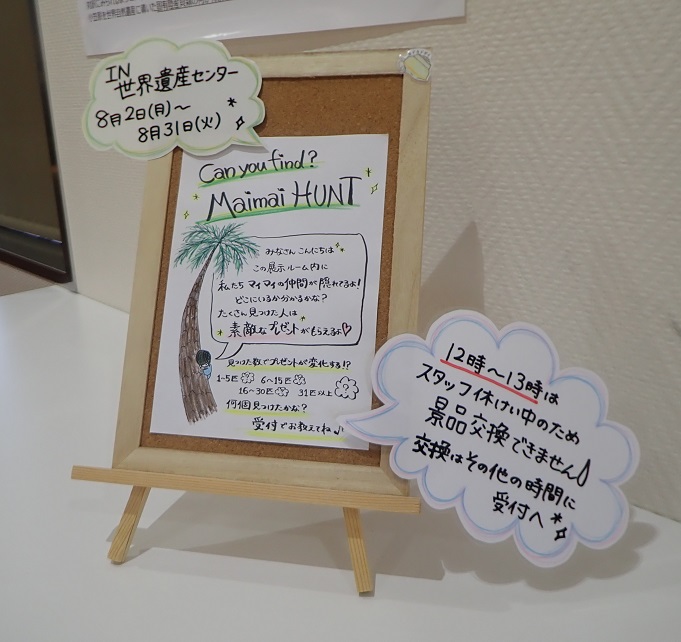 IN
世界遺産センター
8月2日(月)～
8月31日(火)
Can you find?
Maimai HUNT
みなさん こんにちは
この展示ルーム内に
私たち マイマイの仲間が 隠れてるよ!
どこにいるか分かるかな?
たくさん見つけた人は
素敵なプレゼントがもらえるよ♡
見つけた数でプレゼントが変化する!?
1~5匹 6~15匹
16~30匹 31匹以上
何個見つけたかな?
受付でお教えてね♪
12時～13時は
スタッフ休けい中のため
景品交換できません♪
交換はその他の時間に
受付へ